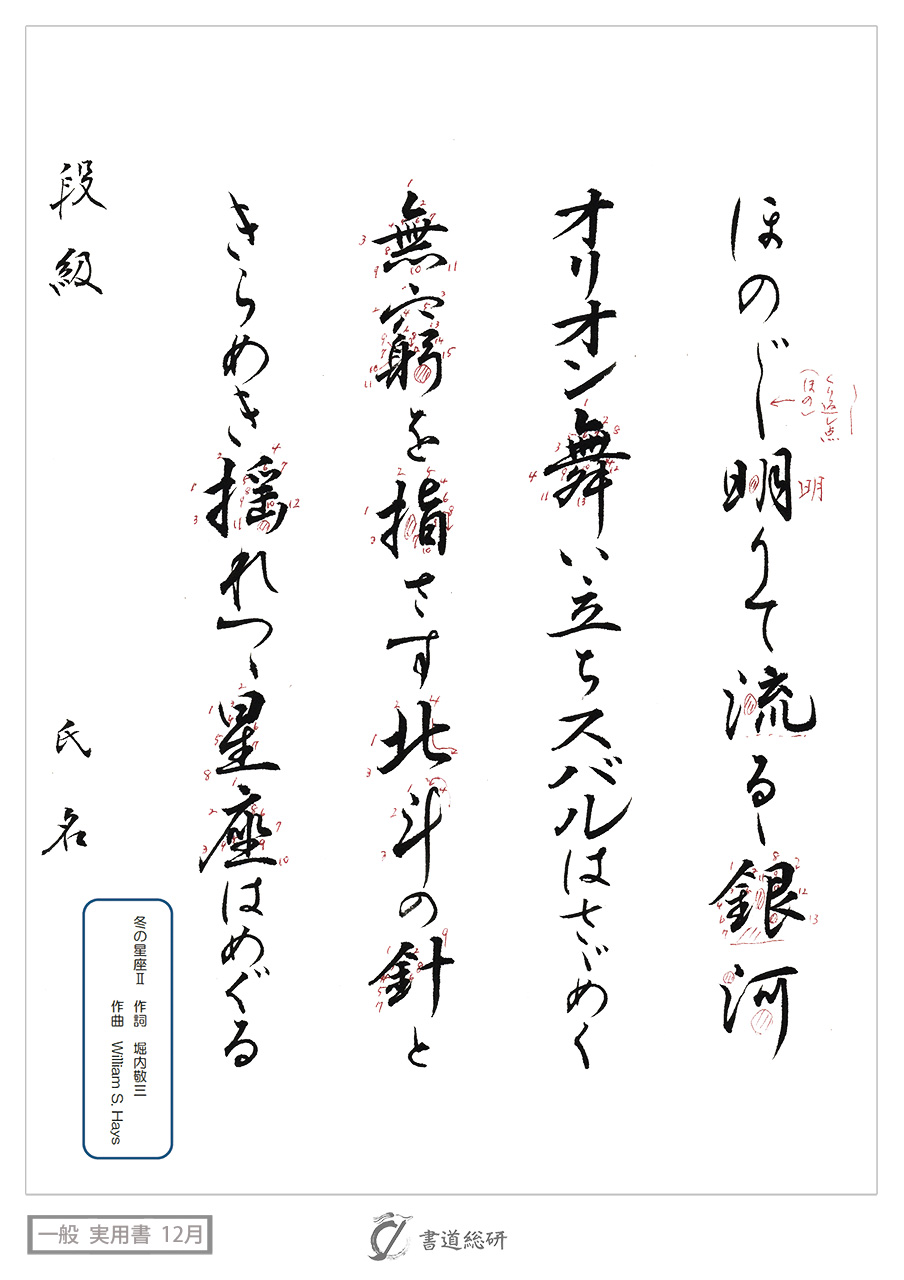 ほの〴〵明りて流るゝ銀河
くり返し点
(ほの)
明
オリオン舞い立ちスバルはさゞめく
無窮を指さす北斗の針と
きらめき揺れつゝ星座はめぐる
段級 氏名
冬の星座Ⅱ 作詞 堀内敬三
作曲 William S. Hays
一般 実用書 12月
書道総研